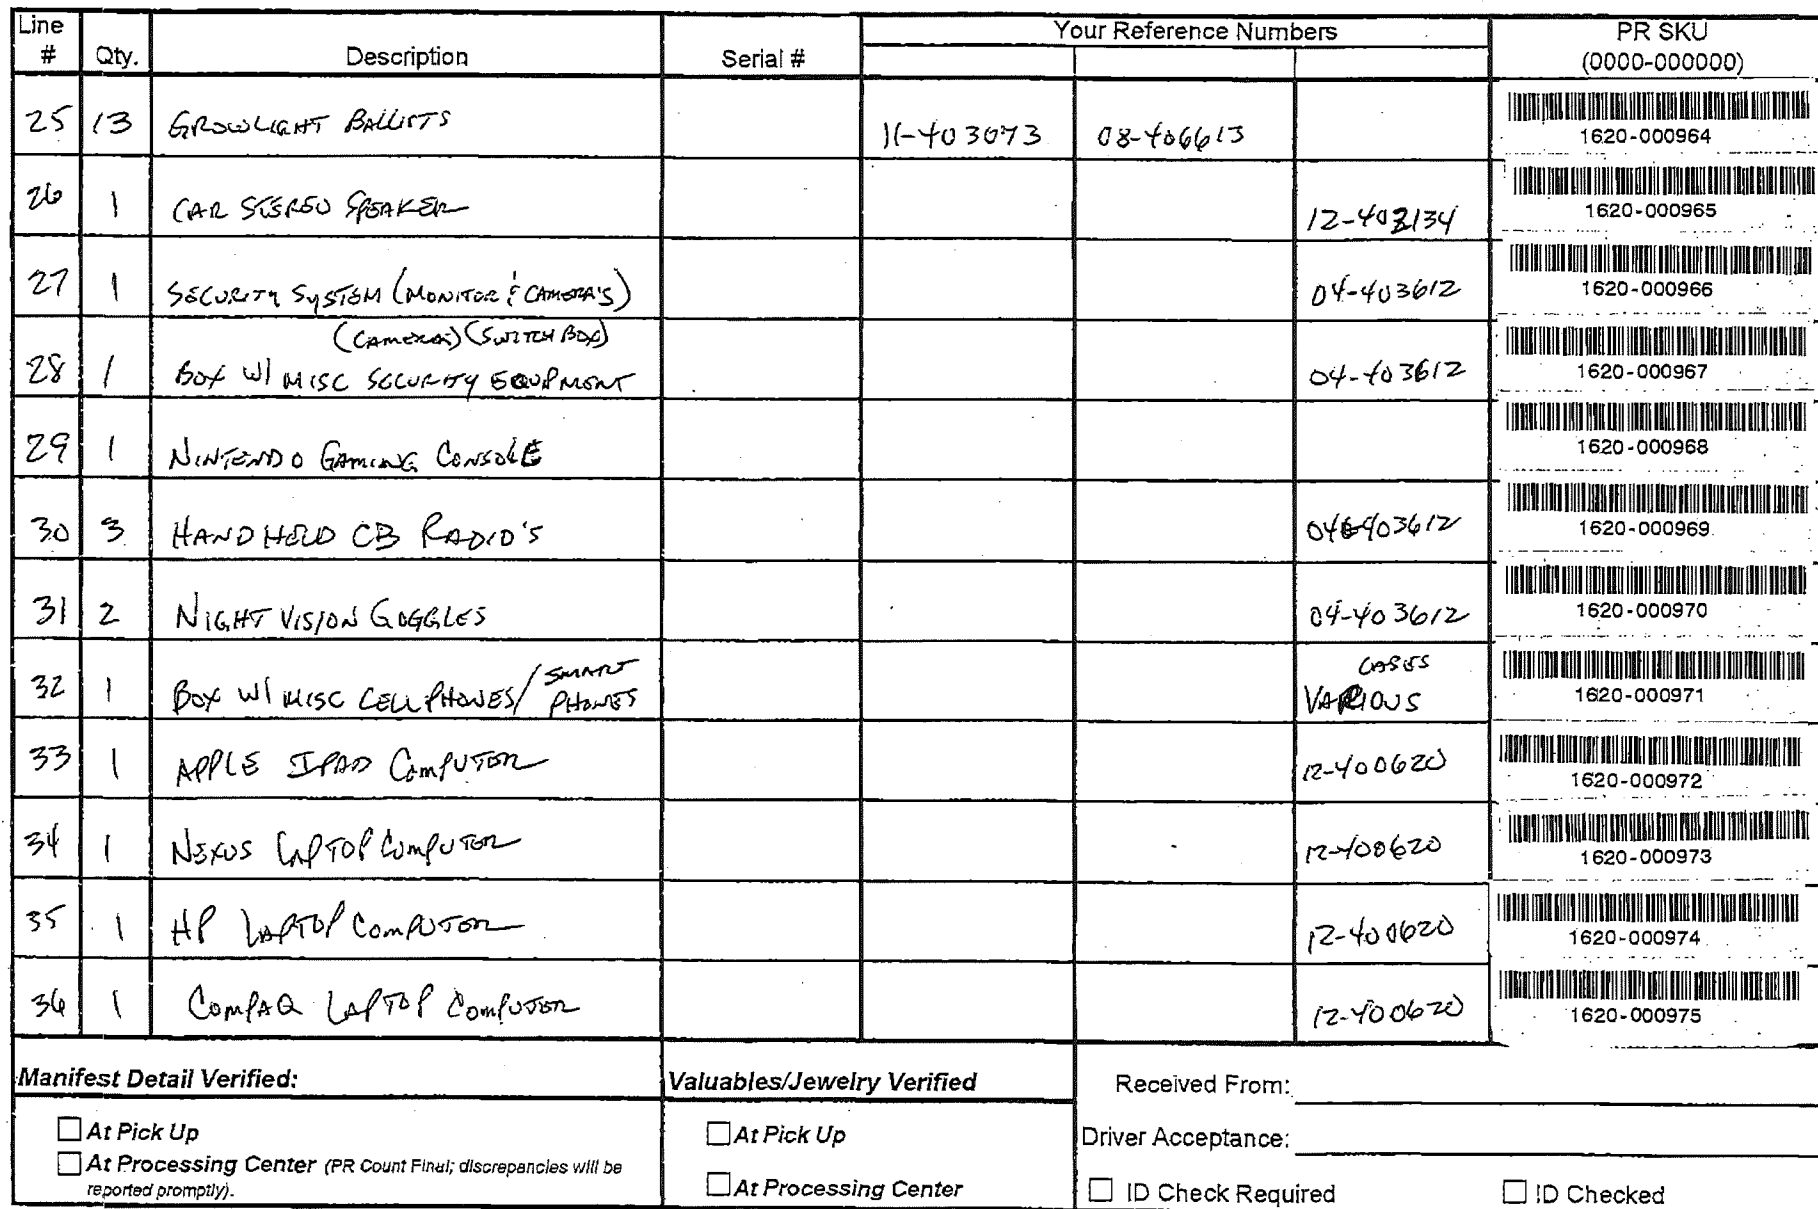 Line # Qty. Description Serial # Your Reference Numbers PR SKU (0000-000000)
25 13 GROWLIGHT BALLISTS 11-403073 08-406613 1620-000964
26 1 CAR STEREO SPEAKER 12-402134 1620-000965
27 1 SECURITY SYSTEM (MONITOR & CAMERA'S) 04-403612 1620-000966
(CAMERAS) (SWITCH BOX)
28 1 BOX W/ MISC SECURITY EQUPMENT 04-403612 1620-000967
29 1 NINTENDO GAMING CONSOLE 1620-000968
30 3 HANDHELD CB RADIO'S 04-403612 1620-000969
31 2 NIGHT VISION GOGGLES 04-403612 1620-000970
32 1 BOX W/ MISC CELL PHONES/ SMART PHONES CASES VARIOUS 1620-000971
33 1 APPLE IPAD COMPUTER 12-400620 1620-000972
34 1 NEXUS LAPTOP COMPUTER 12-400620 1620-000973
35 1 HP LAPTOP COMPUTER 12-400620 1620-000974
36 1 COMPAQ LAPTOP COMPUTER 12-400620 1620-000975
Manifest Detail Verified: Valuables/Jewelry Verified Received From:
At Pick Up At Pick Up Driver Acceptance:
At Processing Center (PR Count Final; discrepancies will be
reported promptly). At Processing Center ID Check Required ID Checked